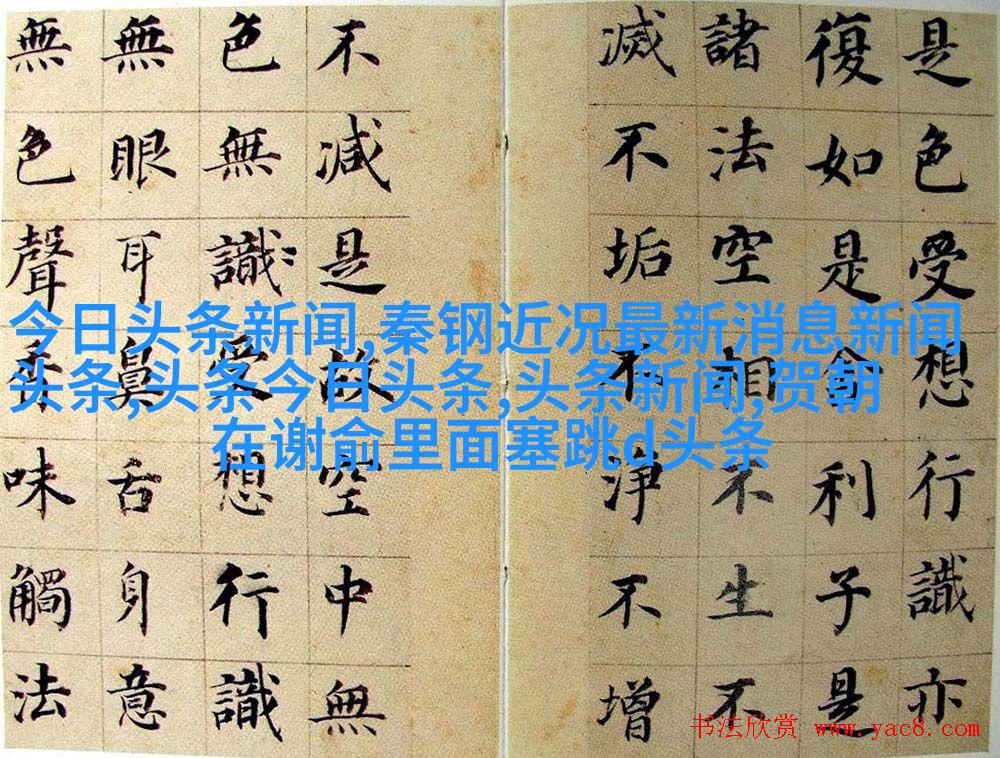 是色受想行識亦
復如是舍利子是
諸法空相不生不
滅不垢不淨不增
不減是故空中無
色無識受想行識
無眼耳鼻舌身意
無色聲香味觸法
今日头条新闻,秦钢近况最新消息新闻
头条,头条今日头条,头条新闻,贺朝
在谢俞里面塞跳d头条
书法欣赏 www.yac8.com